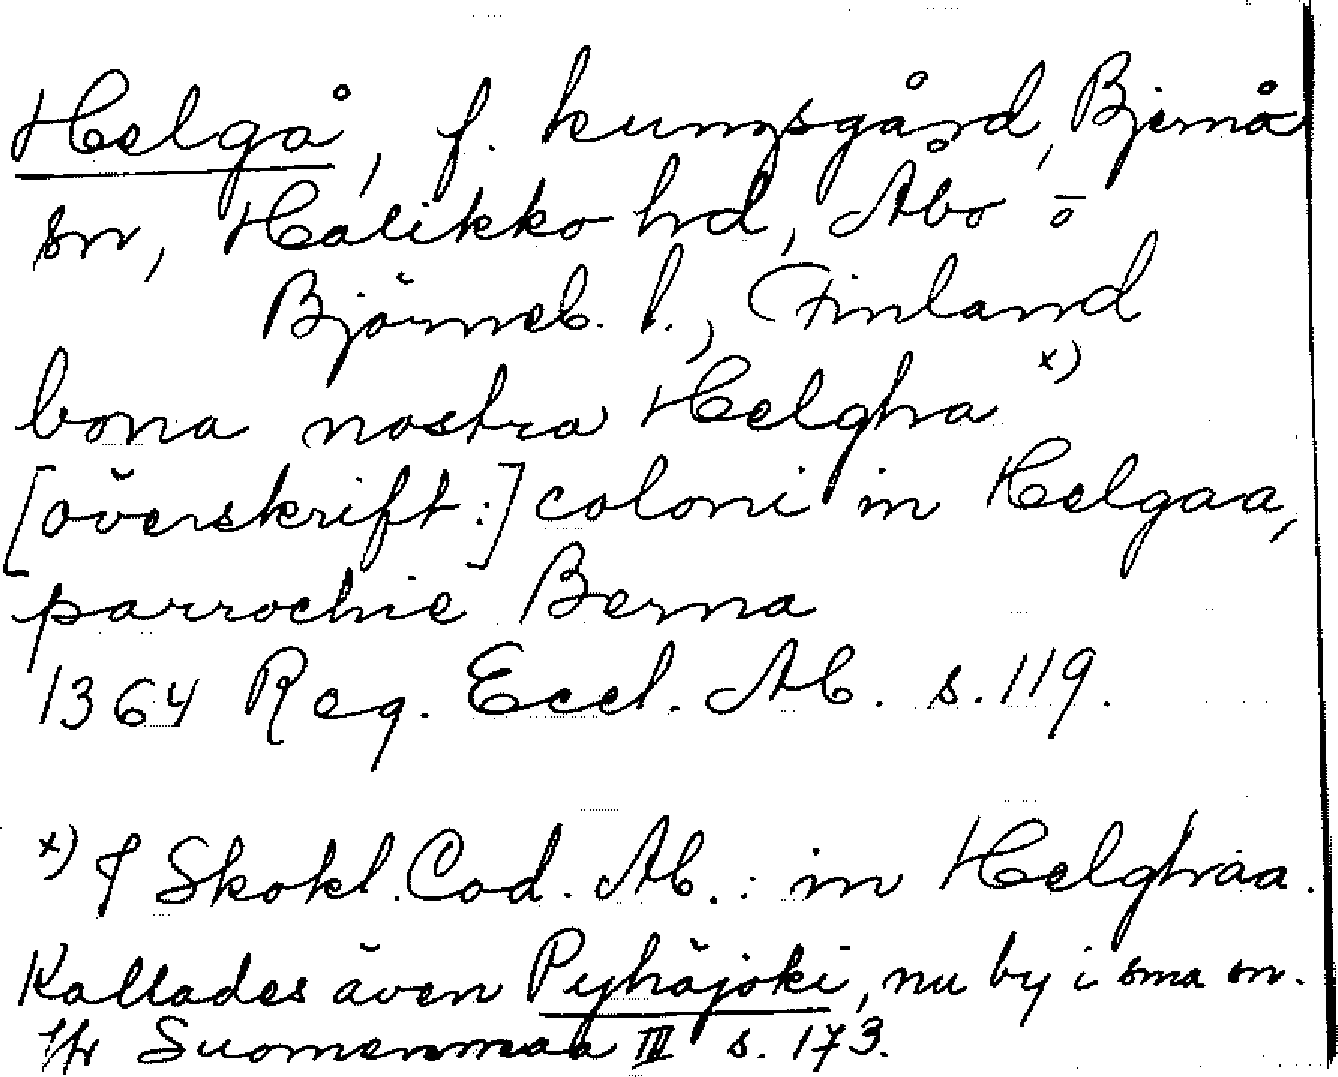 Helgå, f. kungsgård, Bjernå
sn, Halikko hd, Åbo o
Björneb. l., Finland
bona nostra Helgha x)
[överskrift:] coloni in Helgaa,
parrochie Berna
1364 Reg. Eccl. Ab. s. 119.
x) I Skokl. Cod. Ab.: in Helghaa.
Kallades även Pyhäjoki, nu by i sma sn.
Jfr Suomenmaa III s. 173.